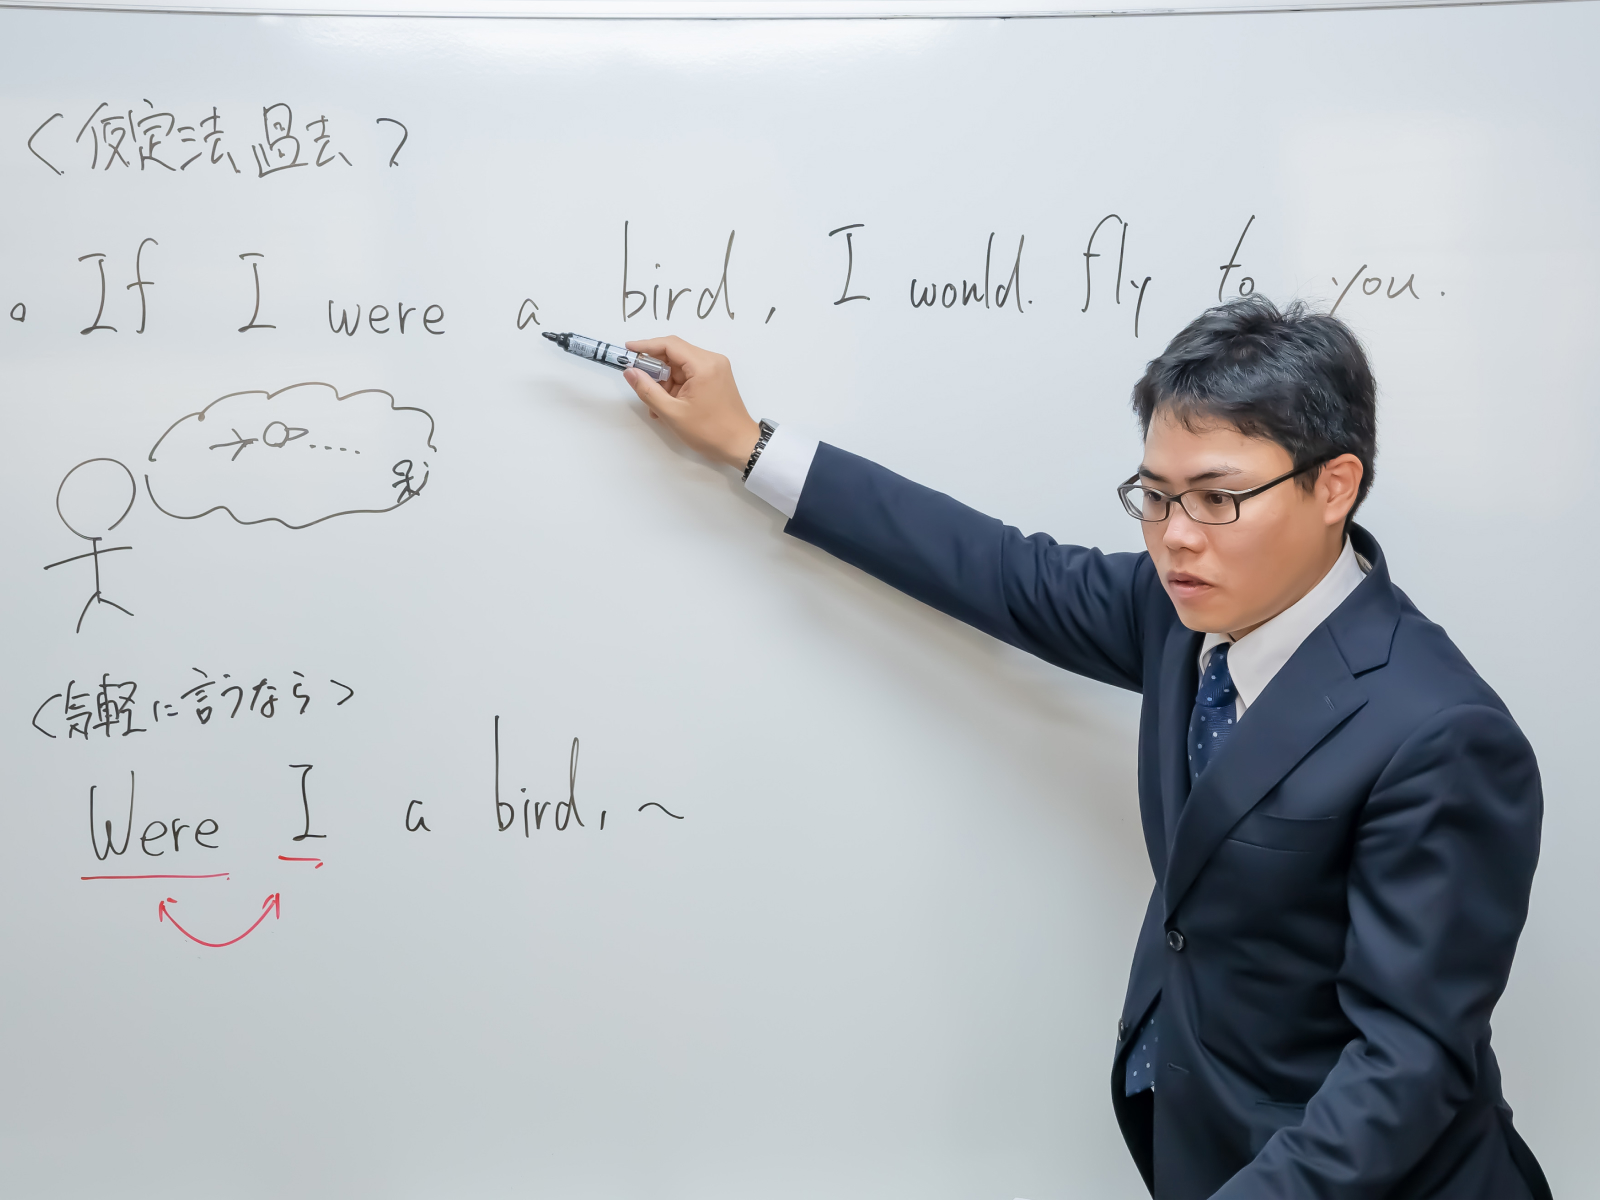 <仮定法過去>
。If I were a bird, I would fly to you.
<気軽に言うなら>
Were I a bird, ~